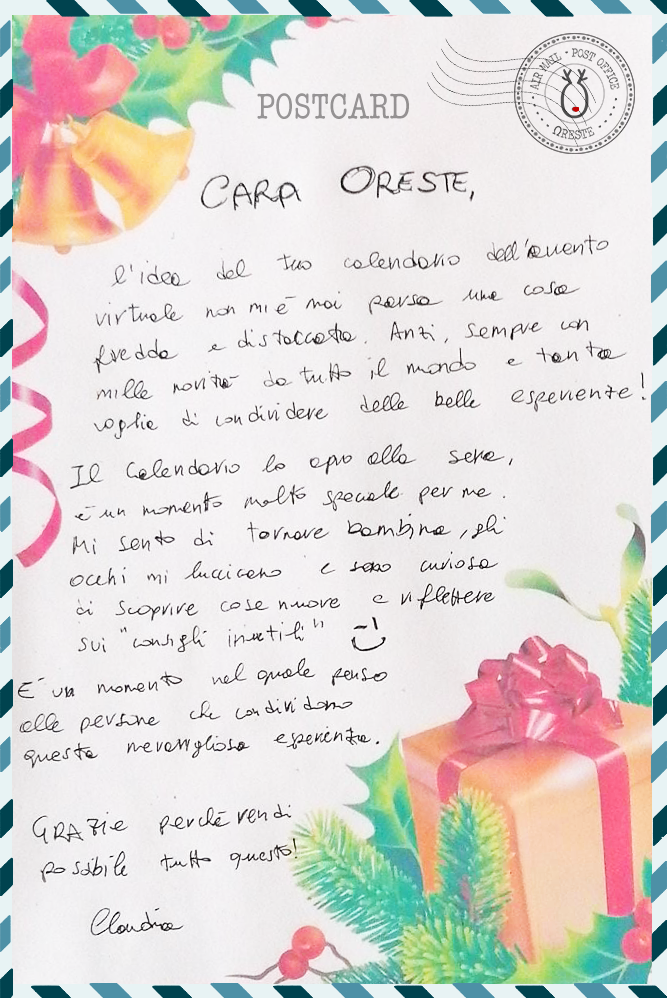 POSTCARD
AIR MAIL - POST OFFICE
ORESTE
CARA ORESTE,
l'idea del tuo calendario dell'avvento
virtuale non mi è mai parsa una cosa
fredda e distaccata. Anzi, sempre con
mille novità da tutto il mondo e tanta
voglia di condividere delle belle esperienze!
Il calendario lo apro alla sera,
è un momento molto speciale per me.
Mi sento di tornare bambina, gli
occhi mi luccicano e sono curiosa
di scoprire cose nuove e riflettere
sui "consigli inutili"
E' un momento nel quale penso
alle persone che condividono
questa meravigliosa esperienza.
GRAZie perchè rendi
possibile tutto questo!
Claudia